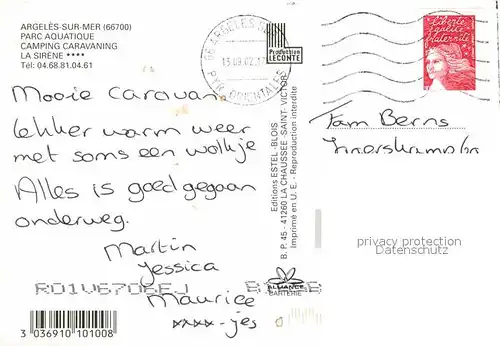 ARGELÈS-SUR-MER (66700)
PARC AQUATIQUE
CAMPING CARAVANING
LA SIRÈNE ****
Tél: 04.68.81.04.61
66 ARGELES S
13.09.02
PYR. ORIENTALES
Production
LECONTE
Liberté
égalité
fraternité
Mooie Caravan
lekker warm weer
met soms een wolkje
Alles is goed gegaan
onderweg.
Martin
Jessica
Maurice
xxxx-jes
Fam Berns
Editions ESTEL-BLOIS
B. P. 45 - 41260 LA CHAUSSÉE-SAINT-VICTOR
Imprimé en U. E. - Reproduction interdite
privacy protection
Datenschutz
ALLIANCE
CARTERIE
3 036910 101008